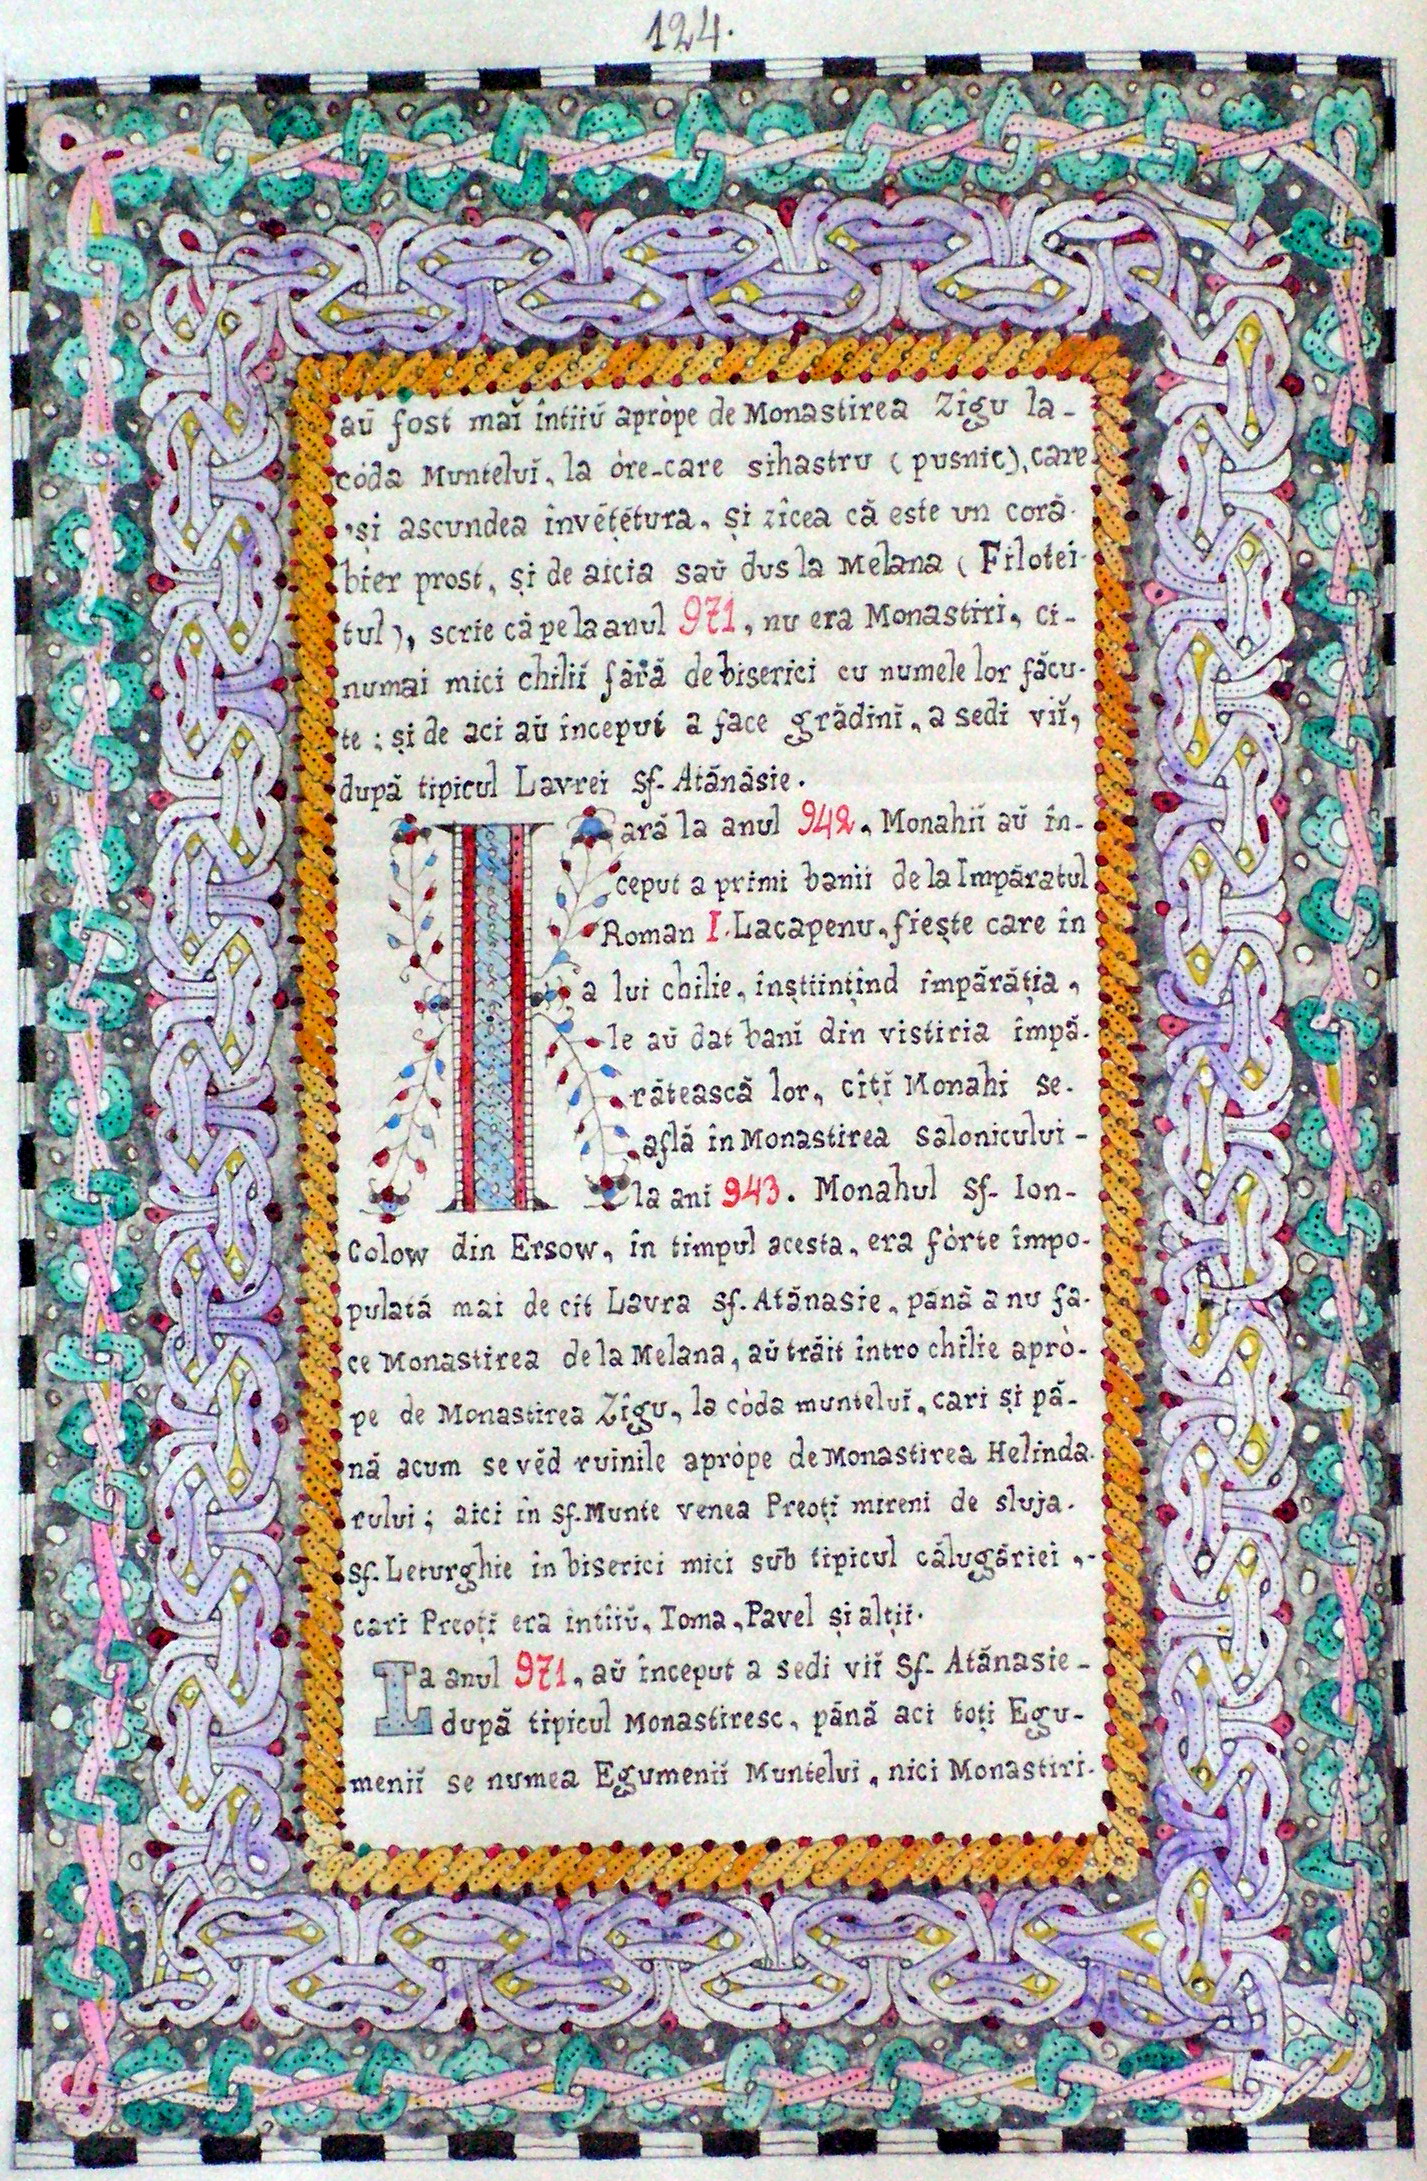 124.
aŭ fost maĭ întîiŭ apròpe de Monastirea Zîgu la-
còda Munteluĭ, la òre-care sihastru (pusnic), care
'și ascundea învĕțĕtura, și zicea că este un coră-
bier prost, și de aicia saŭ dus la Melana (Filotei-
tul), scrie că pe la anul 971, nu era Monastiri, ci-
numai mici chiliĭ fără de biserici cu numele lor făcu-
te; și de aci aŭ început a face grădinĭ, a sedi viĭ,
după tipicul Lavrei Sf. Atănăsie.
Iară la anul 942, Monahiĭ aŭ în-
ceput a primi banii de la Impăratul
Roman I. Lacapenu, fiește care în
a lui chilie, înștiințînd împărăția,
le aŭ dat banĭ din vistiria împă-
rătească lor, cîțĭ Monahi se-
află în Monastirea Salonicului -
la ani 943. Monahul Sf. Ion-
Colow din Ersow, în timpul acesta, era fòrte împo-
pulată mai de cît Lavra Sf. Atănăsie, pănă a nu fa-
ce Monastirea de la Melana, aŭ trăit întro chilie aprò-
pe de Monastirea Zîgu, la còda munteluĭ, cari și pă-
nă acum se vĕd ruinile apròpe de Monastirea Helinda-
rului; aici în Sf. Munte venea Preoțĭ mireni de sluja-
Sf. Leturghie în biserici mici sub tipicul călugăriei,-
cari Preoțĭ era întîiŭ, Toma, Pavel și alțiĭ.
La anul 971, aŭ început a sedi viĭ Sf. Atănăsie-
după tipicul Monastiresc, pănă aci toți Egu-
meniĭ se numea Egumeniĭ Muntelui, nici Monastiri-